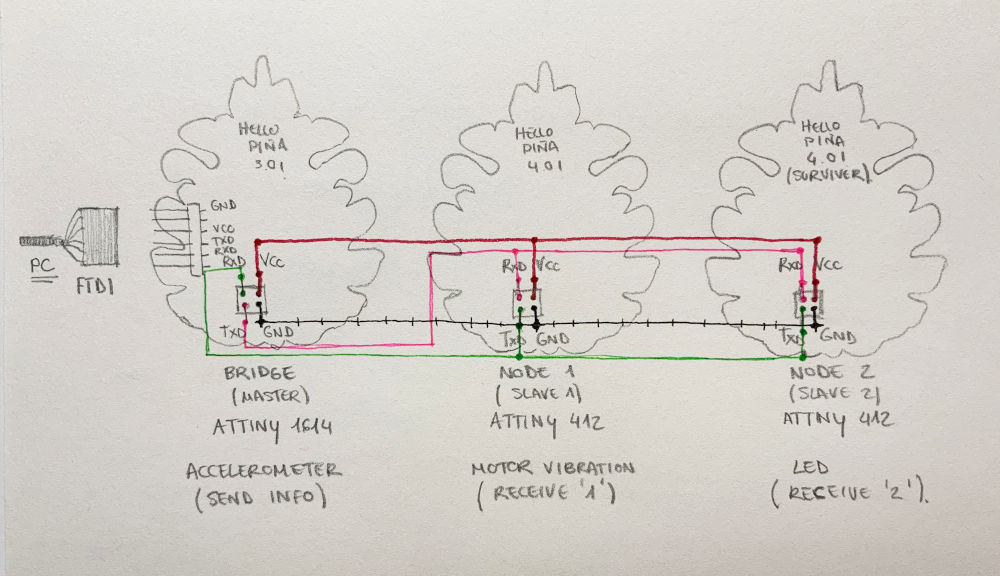 HELLO
PIÑA
3.01
HELLO
PIÑA
4.01
HELLO
PIÑA
4.01
(SURVIVER)
GND
VCC
TXD
RXD
RXD
VCC
TXD
GND
PC
FTDI
RXD
VCC
TXD
GND
RXD
VCC
TXD
GND
BRIDGE
(MASTER)
ATTINY 1614
ACCELEROMETER
(SEND INFO)
NODE 1
(SLAVE 1)
ATTINY 412
MOTOR VIBRATION
(RECEIVE '1')
NODE 2
(SLAVE 2)
ATTINY 412
LED
(RECEIVE '2').